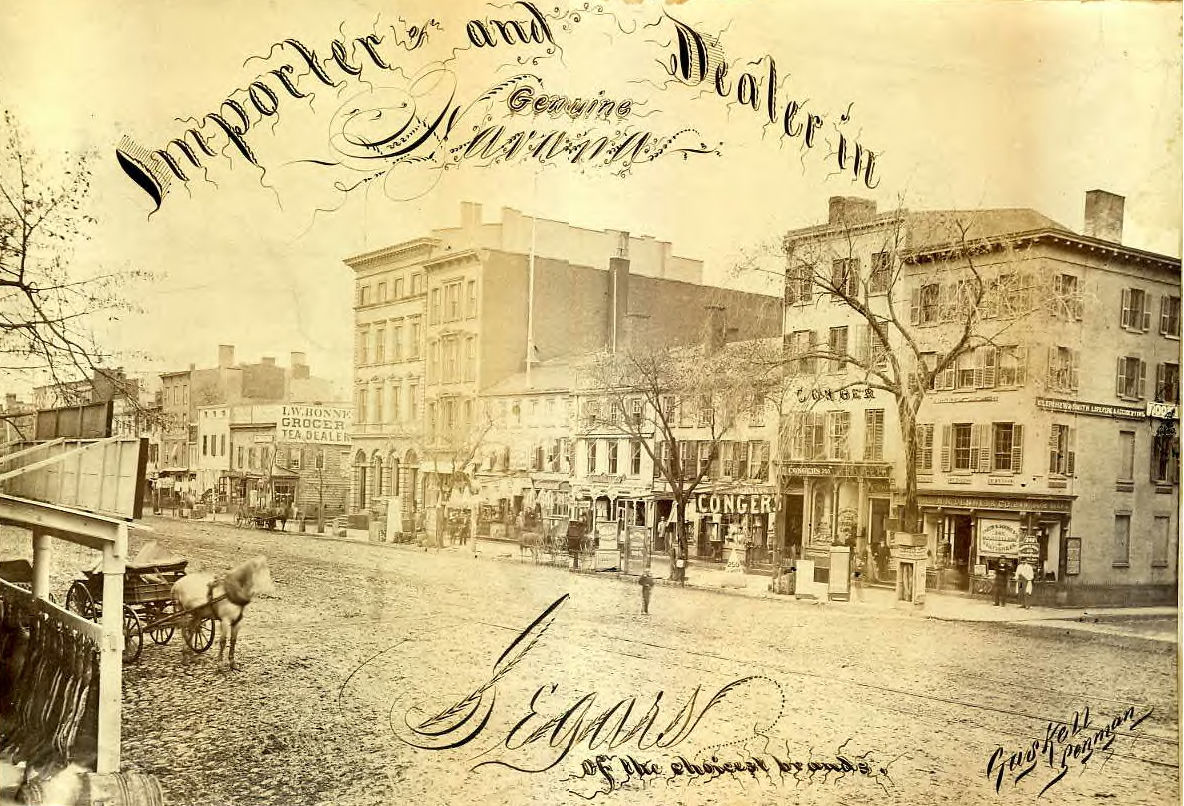 Importer of and Dealer in
Genuine
Havana
I.W. BONNE
GROCER
TEA DEALER
CONGER
CONGERS
CONGER
Segars
of the choicest brands.
Gaskell
Penman